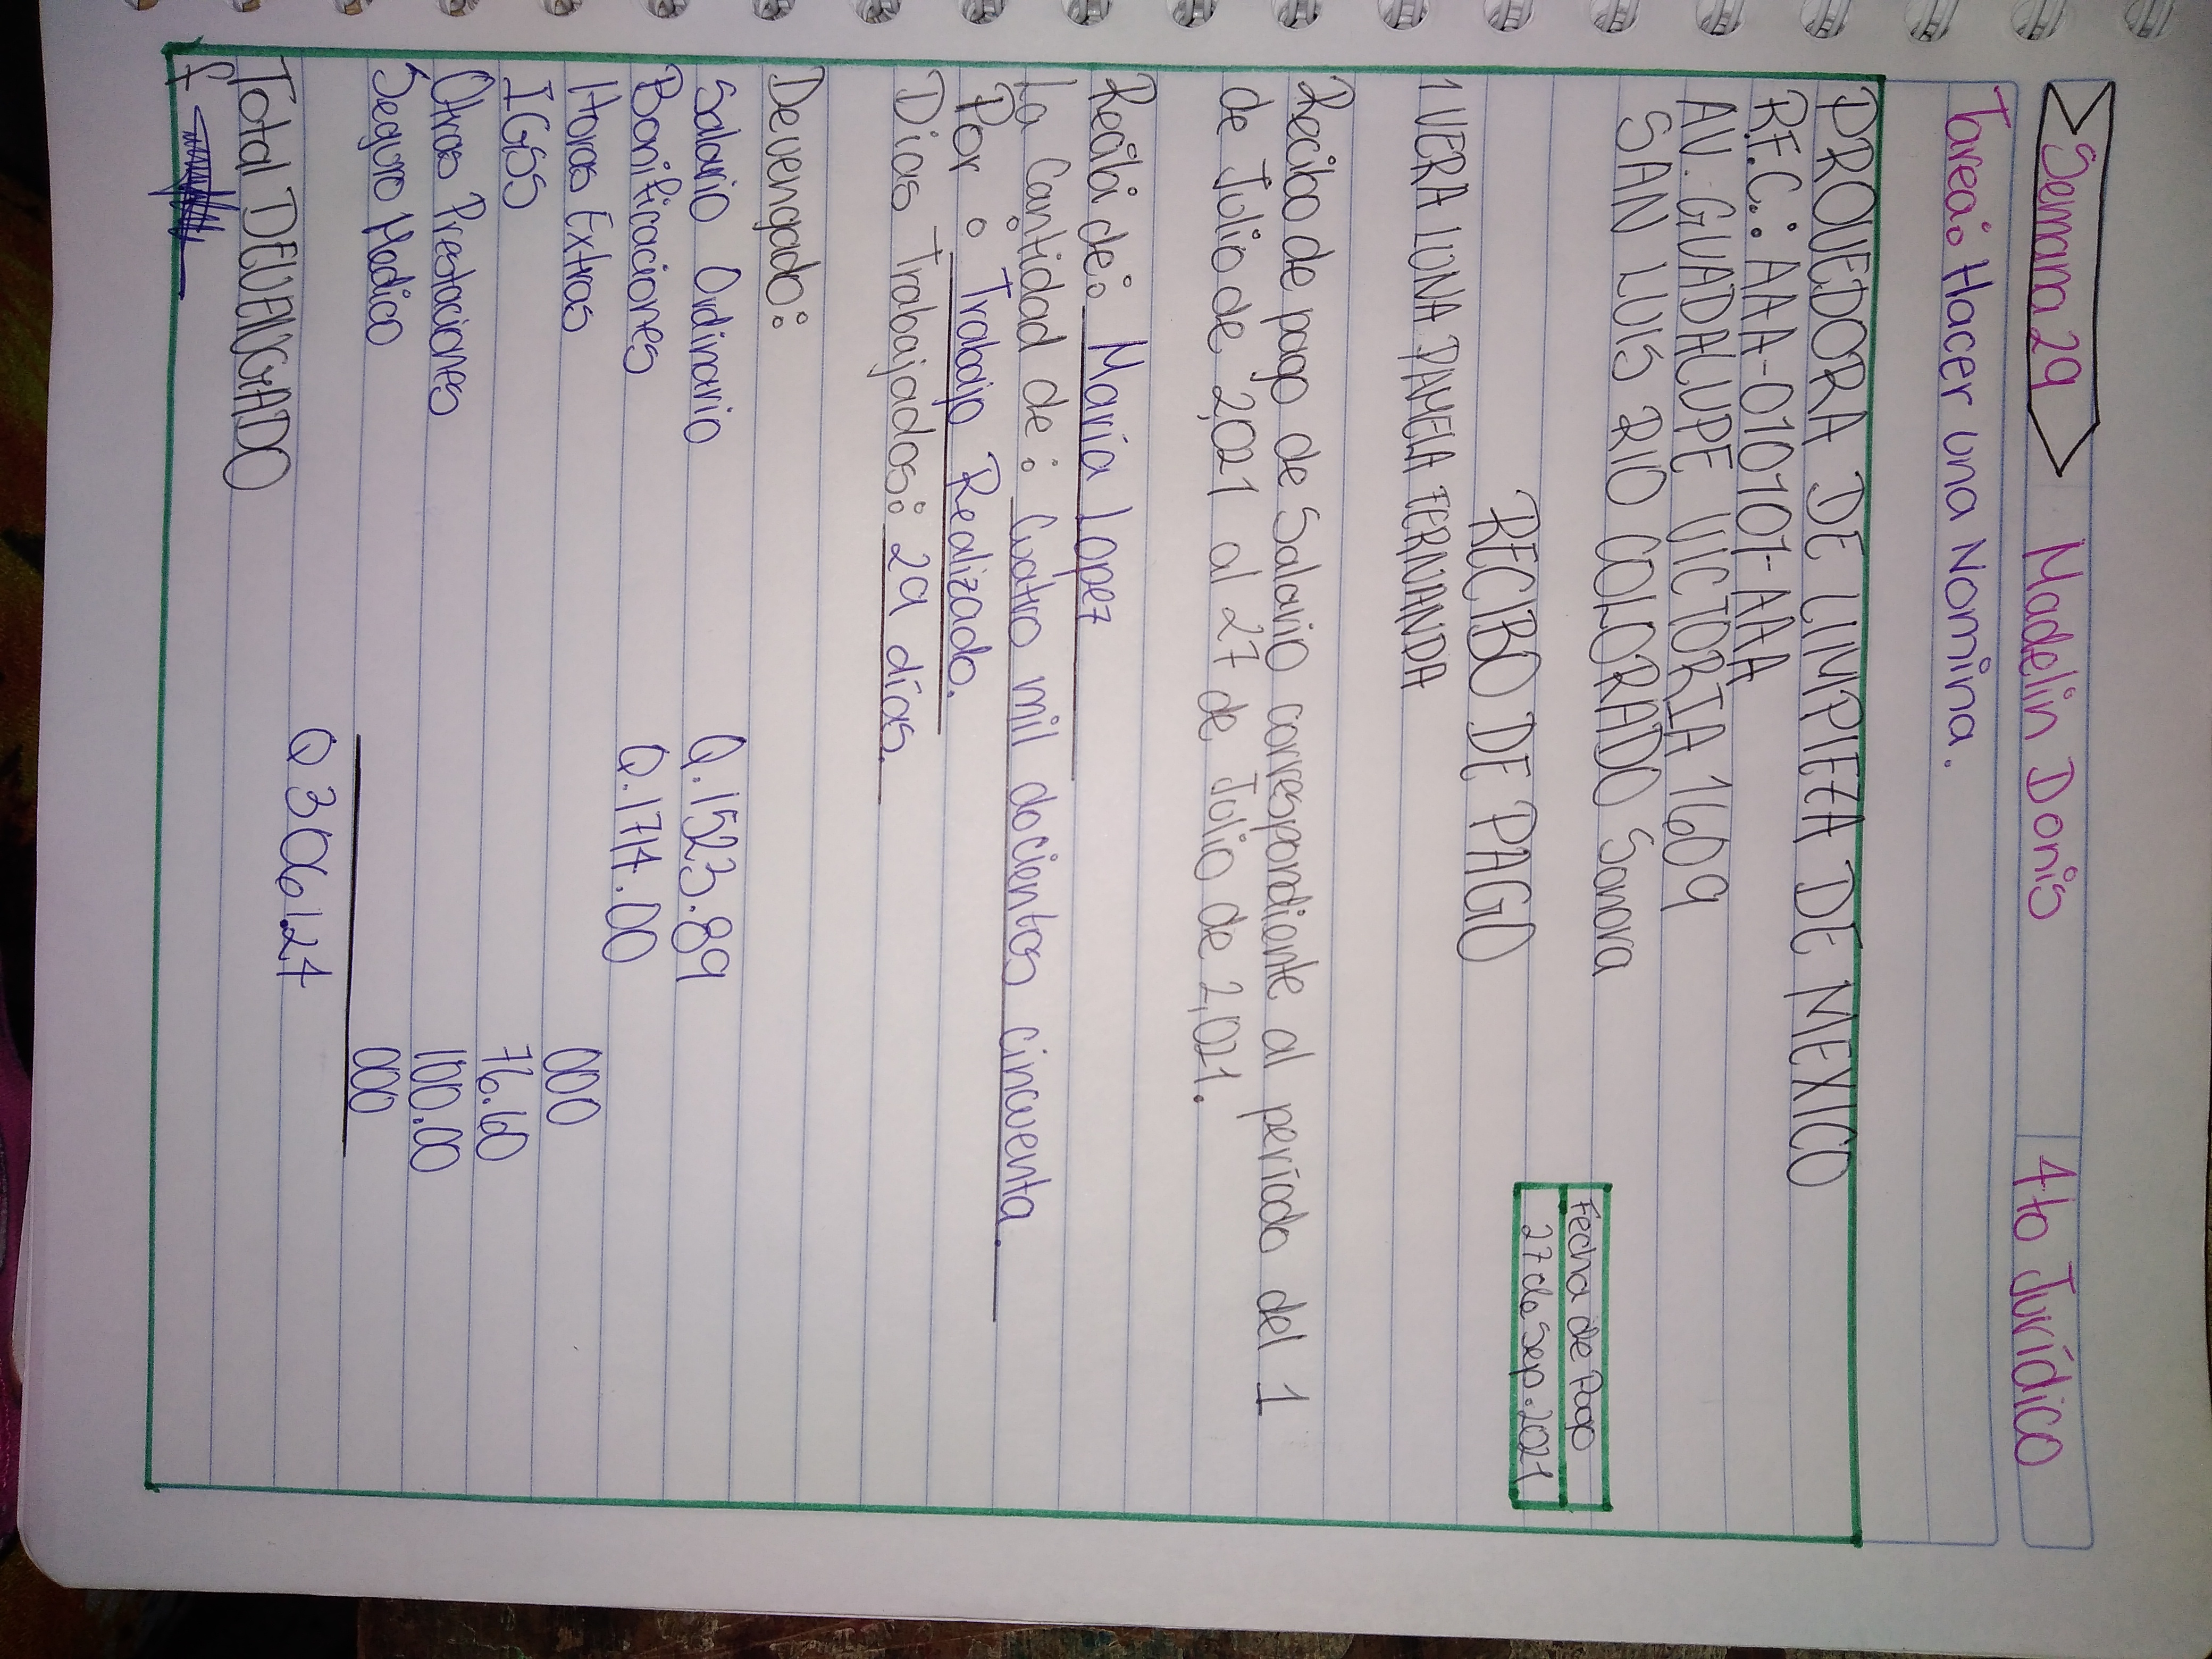 Semana 29 Madelin Donis 4to Jurídico
Tarea: Hacer una Nomina.
PROVEDORA DE LIMPIEZA DE MEXICO
R.F.C.: AAA-010101-AAA
AV. GUADALUPE VICTORIA 1609
SAN LUIS RIO COLORADO Sonora
Fecha de Pago
27 de Sep. 2021
RECIBO DE PAGO
1 VERA LUNA PAMELA FERNANDA
Recibo de pago de Salario correspondiente al período del 1
de Julio de 2,021 al 27 de Julio de 2,021.
Recibí de: María Lopez
La Cantidad de: Cuatro mil docientos cincuenta.
Por: Trabajo Realizado.
Dias Trabajados: 29 días.
Devengado:
Salario Ordinario Q.1523.89
Bonificaciones Q.1714.00
Horas Extras 000
IGSS 76.60
Otras Prestaciones 100.00
Seguro Medico 000
Q 3061.27
Total DEVENGADO
f.